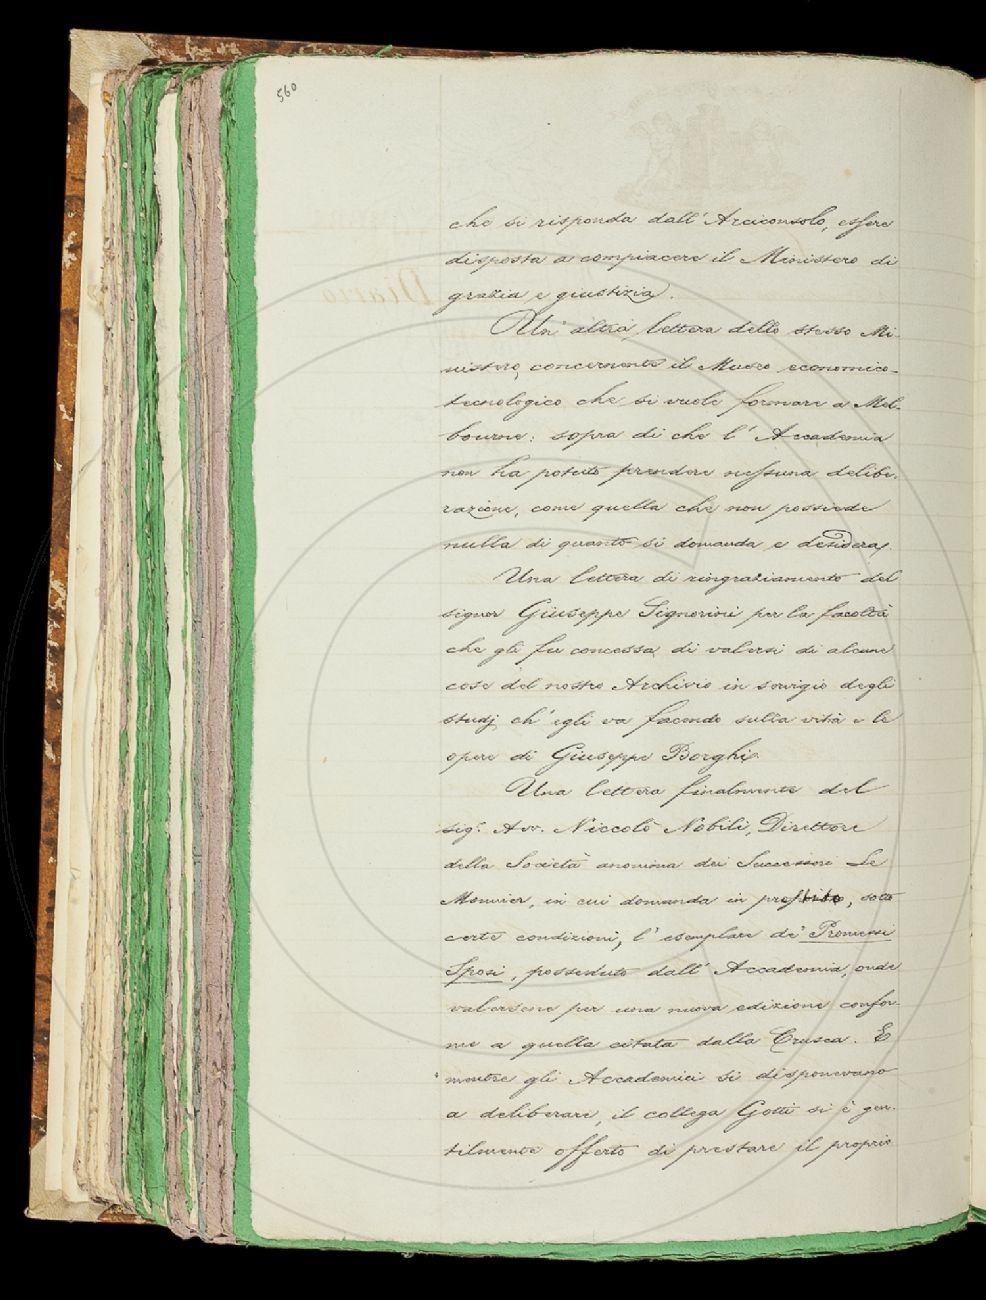 560
che si risponda dall' Arciconsolo, essere
disposta a compiacere il Ministero di
grazia e giustizia.
Un' altra lettera dello stesso Mi-
nistero, concernente il Museo economico-
tecnologico che si vuole formare a Mel-
bourne: sopra di che l' Accademia
non ha potuto prendere nessuna delibe-
razione, come quella che non possiede
nulla di quanto si domanda e desidera.
Una lettera di ringraziamento del
signor Giuseppe Signorini per la facoltà
che gli fu concessa di valersi di alcune
cose del nostro Archivio in servigio degli
studj ch' egli va facendo sulla vita e le
opere di Giuseppe Borghi.
Una lettera finalmente del
sig.r Avv. Niccolò Nobili, Direttore
della Società anonima dei Successori Le
Monnier, in cui domanda in prestito, sotto
certe condizioni, l' esemplare de' Promessi
Sposi, posseduto dall' Accademia, onde
valersene per una nuova edizione confor-
me a quella citata dalla Crusca. E
mentre gli Accademici si disponevano
a deliberare, il collega Gotti si è gen-
tilmente offerto di prestare il proprio